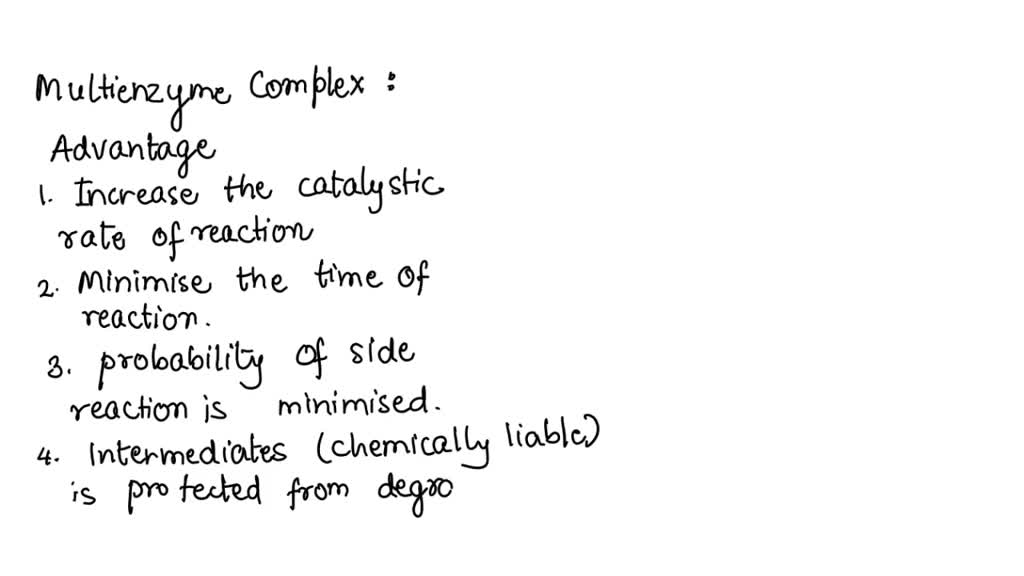 Multienzyme Complex :
Advantage
1. Increase the catalystic
rate of reaction
2. Minimise the time of
reaction.
3. probability of side
reaction is minimised.
4. Intermediates (chemically liable)
is protected from degro